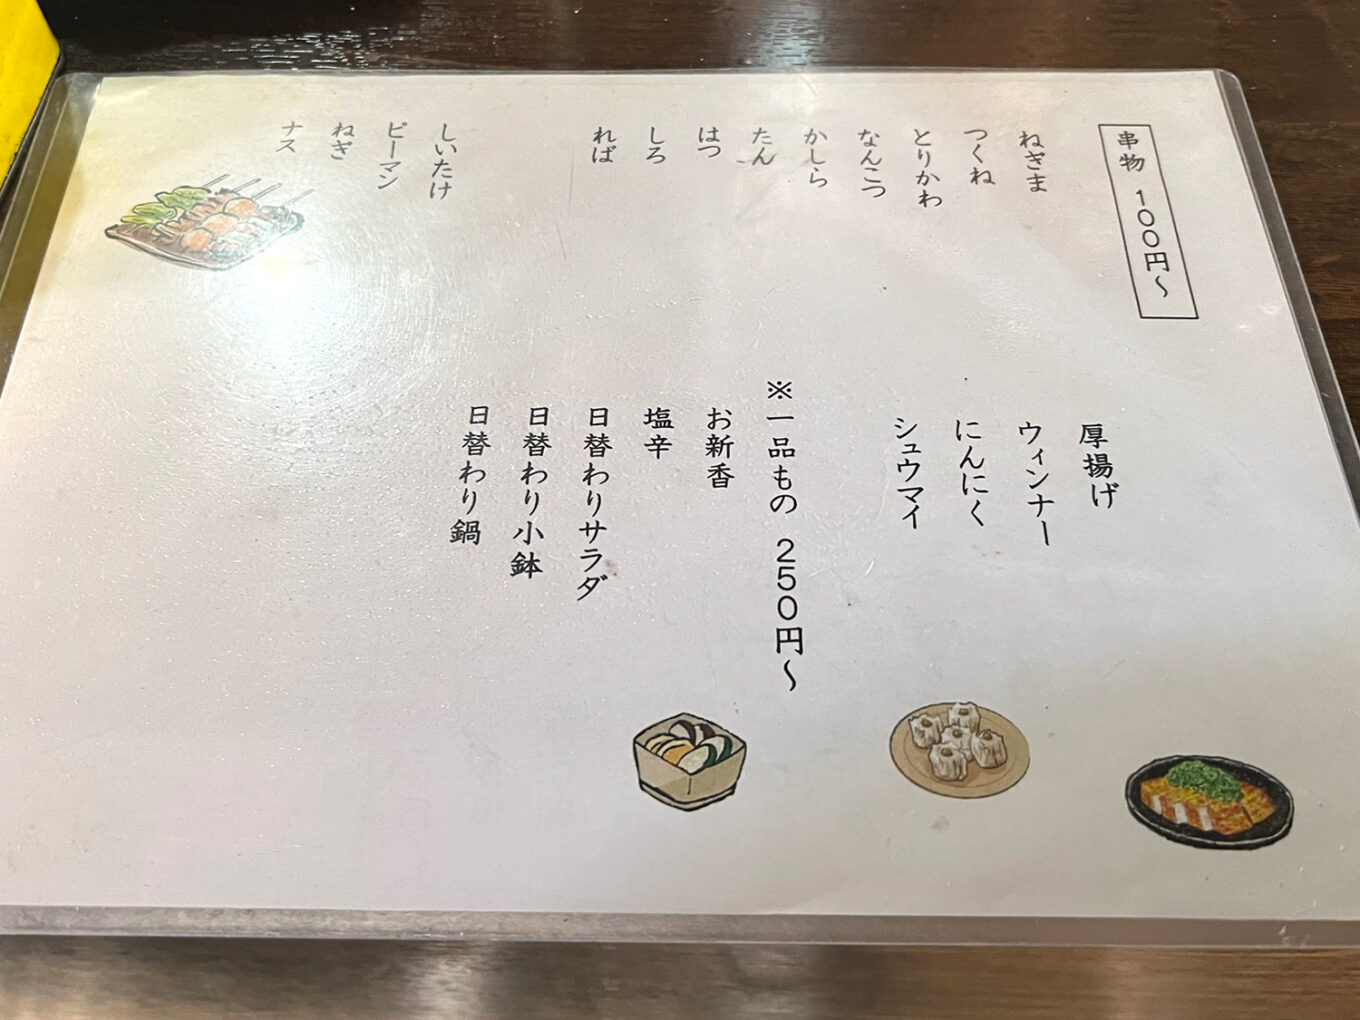 串物 100円～
ねぎま
つくね
とりかわ
なんこつ
かしら
たん
はつ
しろ
れば
しいたけ
ピーマン
ねぎ
ナス
厚揚げ
ウィンナー
にんにく
シュウマイ
※一品もの 250円～
お新香
塩辛
日替わりサラダ
日替わり小鉢
日替わり鍋